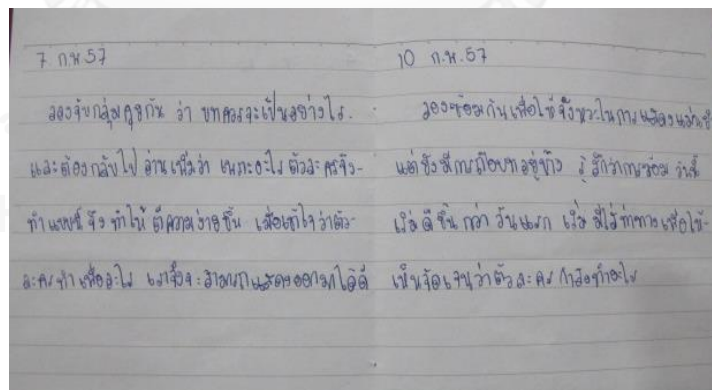 7 ก.พ 57
ลองจับกลุ่มคุยกัน ว่า บทควรจะเป็นอย่างไร.
และต้องกลับไป อ่านเพิ่มว่า เพราะอะไร ตัวละครจึง-
ทำแบบนี้ จึง ทำให้ ตีความง่ายขึ้น เมื่อเข้าใจว่าตัว-
ละครทำเพื่ออะไร เราจึงจะสามารถแสดงออกมาได้ดี
10 ก.พ. 57
ลองซ้อมกันเพื่อใช้จังหวะในการแสดง
แต่ยังมีการถือบทอยู่บ้าง รู้สึกว่าการซ้อม วันนี้
เริ่มดีขึ้น กว่า วันแรก เริ่ม มีใส่ท่าทาง เพื่อให้-
เห็นชัดเจนว่าตัวละคร กำลังทำอะไร